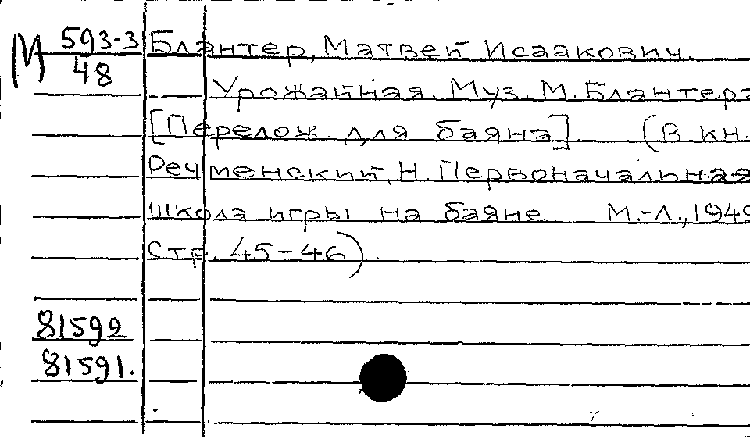 М 593-3
48
Блантер, Матвей Исаакович.
Урожайная. Муз. М. Блантера
[Перелож. для баяна] (В кн.
Речменский, Н. Первоначальная
школа игры на баяне М.-Л., 1949
Стр. 45-46)
81592
81591.